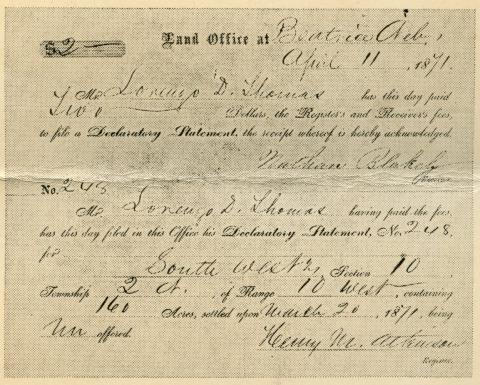 $2— Land Office at Beatrice Neb,
April 11, 1871.
Mr. Lorenzo D. Thomas has this day paid
Two Dollars, the Register's and Receiver's fees,
to file a Declaratory Statement, the receipt whereof is hereby acknowledged.
Nathan Blakely
Receiver.
No. 248
Mr. Lorenzo D. Thomas having paid the fees,
has this day filed in this Office his Declaratory Statement, No. 248,
for
South West ¼, Section 10,
Township 2 N., of Range 10 West, containing
160 Acres, settled upon March 20, 1871, being
Un offered.
Henry M. Atkinson
Register.